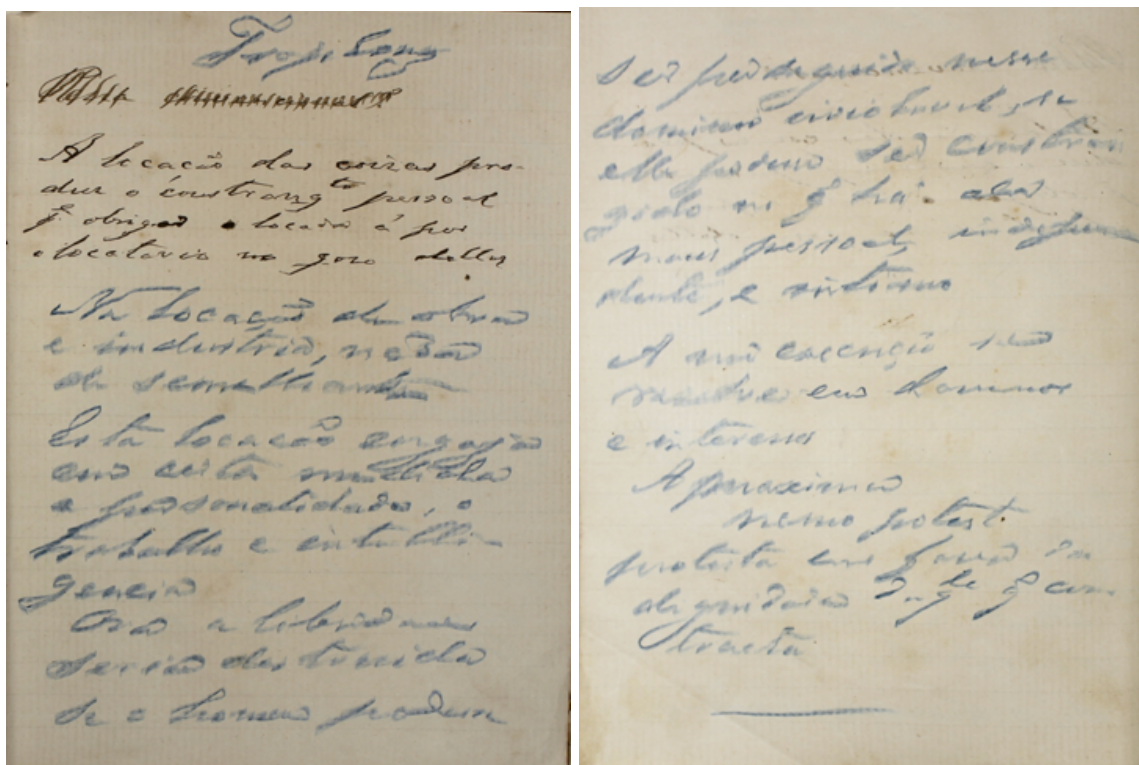 Trop. Long
A locação das coizas pro-
duz o constrangto pessoal
q̃ obriga o locador á por
o locatario no gozo dellas
Na locação de obras
e industria, nada
de semelhante
Esta locação engaja
em certa medida
a personalidade, o
trabalho e intelli-
gencia
Ora a liberdade
seria destruida
se o homem podesse
ser perseguido nesse
dominio inviolavel, se
elle podesse ser constran
gido no q̃ há de
mais pessoal, indepen
dente, e intimo
A inexecução se
resolve em damnos
e interesses
A maxima
nemo potest
protesta em favor da
dignidade daqle q̃ con
tracta